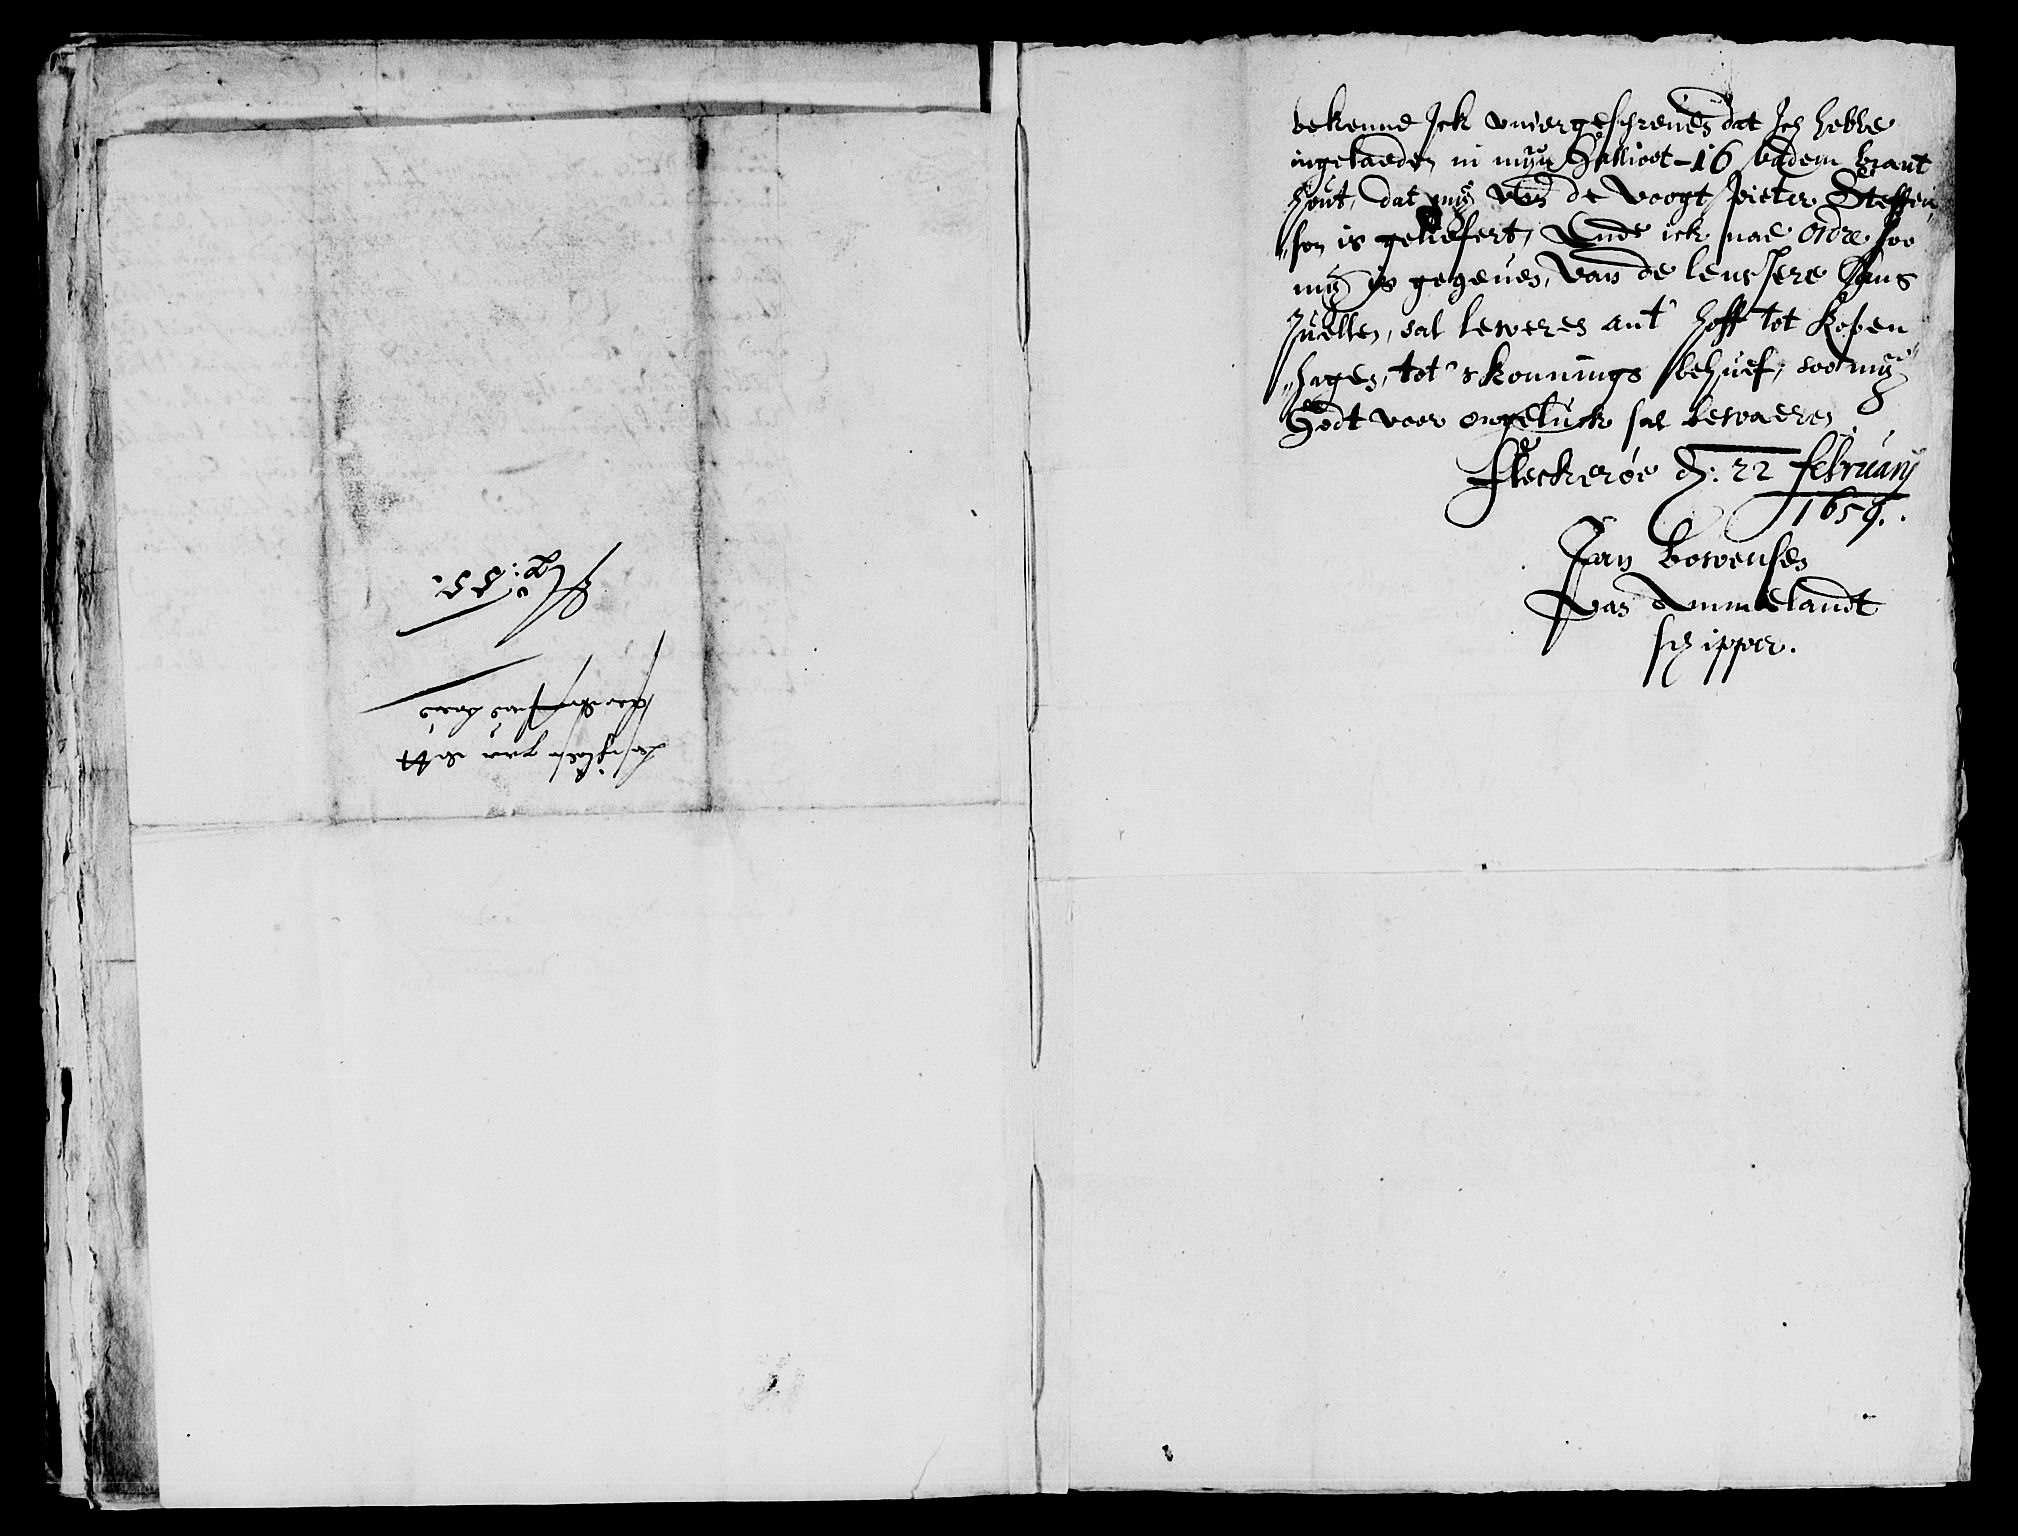 bekenne Ick ondergeschreven dat Ich hebbe
ingelaeden in mijn Gallioot - 16 vadem brant
hout, dat mij van de voogt Pieter Steffen„
„sen is geliefert, Ende ick nae Ordre soo
mij is gegeven, van de lens Here Hans
Juellen, sal leweren ant hoff tot Kopen
„hagen, tot 's konnings behuef, soo mij
Godt voor ongeluck sal bewaeren
Fleckeröe d: 22 february
1659.
Jan Bowensen
van Ammelandt
schipper.